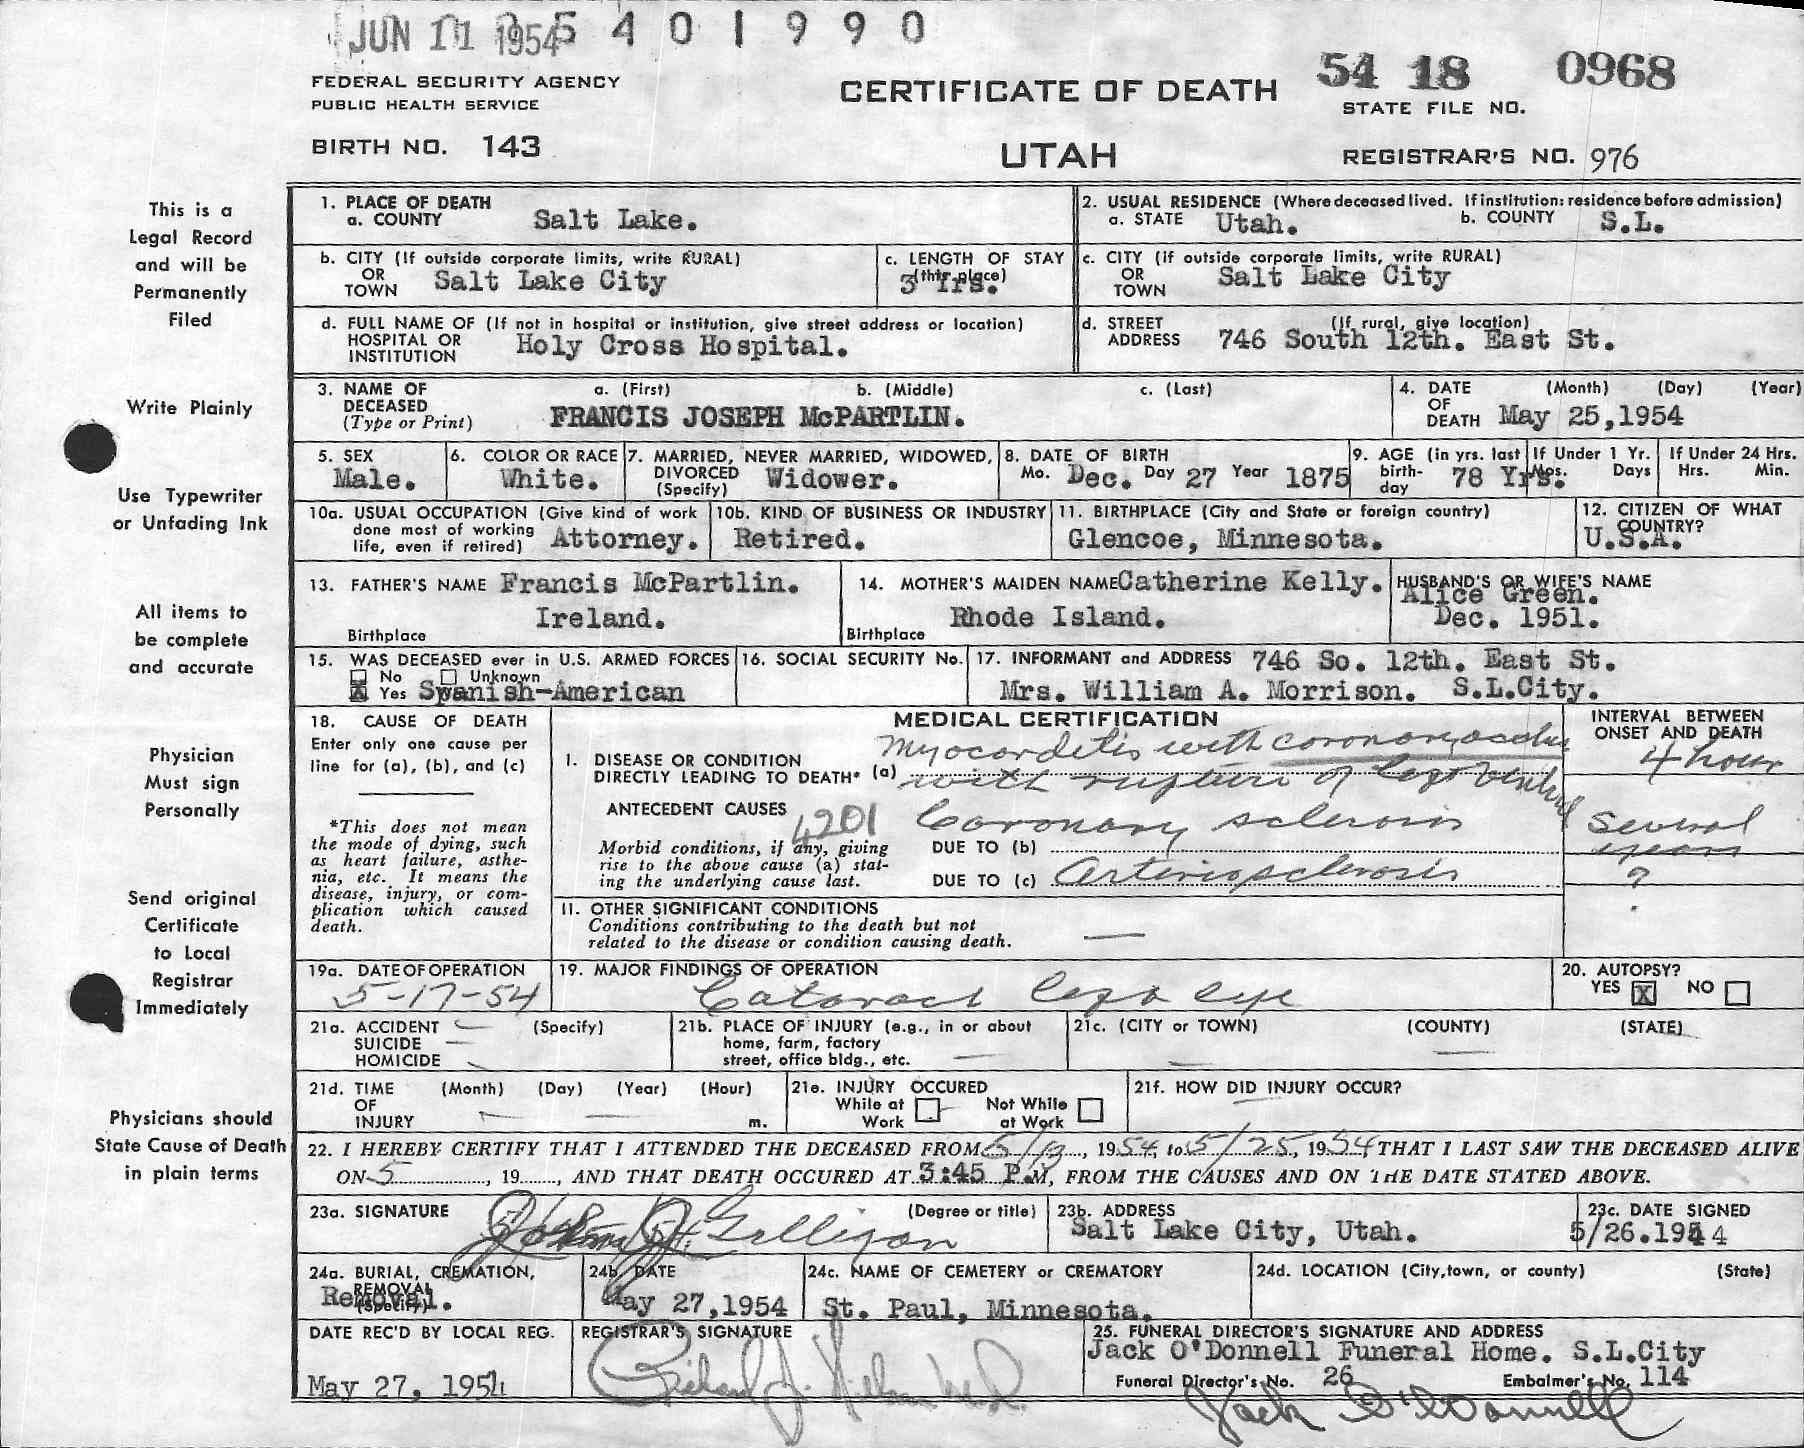 JUN 11 1954 5 4 0 1 9 9 0
FEDERAL SECURITY AGENCY
PUBLIC HEALTH SERVICE
BIRTH NO. 143
CERTIFICATE OF DEATH
UTAH
54 18 0968
STATE FILE NO.
REGISTRAR'S NO. 976
This is a
Legal Record
and will be
Permanently
Filed
Write Plainly
Use Typewriter
or Unfading Ink
All items to
be complete
and accurate
Physician
Must sign
Personally
Send original
Certificate
to Local
Registrar
Immediately
Physicians should
State Cause of Death
in plain terms
1. PLACE OF DEATH
a. COUNTY Salt Lake.
2. USUAL RESIDENCE (Where deceased lived. If institution: residence before admission)
a. STATE Utah. b. COUNTY S.L.
b. CITY (If outside corporate limits, write RURAL)
OR
TOWN Salt Lake City
c. LENGTH OF STAY
(this place)
3 Yrs.
c. CITY (If outside corporate limits, write RURAL)
OR
TOWN Salt Lake City
d. FULL NAME OF (If not in hospital or institution, give street address or location)
HOSPITAL OR
INSTITUTION Holy Cross Hospital.
d. STREET (If rural, give location)
ADDRESS 746 South 12th. East St.
3. NAME OF a. (First) b. (Middle) c. (Last)
DECEASED
(Type or Print) FRANCIS JOSEPH McPARTLIN.
4. DATE (Month) (Day) (Year)
OF
DEATH May 25,1954
5. SEX
Male.
6. COLOR OR RACE
White.
7. MARRIED, NEVER MARRIED, WIDOWED,
DIVORCED
(Specify) Widower.
8. DATE OF BIRTH
Mo. Dec. Day 27 Year 1875
9. AGE (in yrs. last
birth-
day 78 Yrs.
If Under 1 Yr.
Mos. Days
If Under 24 Hrs.
Hrs. Min.
10a. USUAL OCCUPATION (Give kind of work
done most of working
life, even if retired) Attorney.
10b. KIND OF BUSINESS OR INDUSTRY
Retired.
11. BIRTHPLACE (City and State or foreign country)
Glencoe, Minnesota.
12. CITIZEN OF WHAT
COUNTRY?
U.S.A.
13. FATHER'S NAME Francis McPartlin.
Ireland.
Birthplace
14. MOTHER'S MAIDEN NAME Catherine Kelly.
Rhode Island.
Birthplace
HUSBAND'S OR WIFE'S NAME
Alice Green.
Dec. 1951.
15. WAS DECEASED ever in U.S. ARMED FORCES
No Unknown
X Yes Spanish-American
16. SOCIAL SECURITY No.
17. INFORMANT and ADDRESS 746 So. 12th. East St.
Mrs. William A. Morrison. S.L.City.
18. CAUSE OF DEATH
Enter only one cause per
line for (a), (b), and (c)
*This does not mean
the mode of dying, such
as heart failure, asthe-
nia, etc. It means the
disease, injury, or com-
plication which caused
death.
MEDICAL CERTIFICATION
INTERVAL BETWEEN
ONSET AND DEATH
I. DISEASE OR CONDITION
DIRECTLY LEADING TO DEATH* (a) Myocarditis with coronary
with rupture of left
4 hour
ANTECEDENT CAUSES
4201
Morbid conditions, if any, giving
rise to the above cause (a) stat-
ing the underlying cause last.
DUE TO (b) Coronary sclerosis
Several
years
DUE TO (c) Arteriosclerosis
?
II. OTHER SIGNIFICANT CONDITIONS
Conditions contributing to the death but not
related to the disease or condition causing death. —
19a. DATE OF OPERATION
5-17-54
19. MAJOR FINDINGS OF OPERATION
Cataract left eye
20. AUTOPSY?
YES X NO
21a. ACCIDENT (Specify)
SUICIDE
HOMICIDE
21b. PLACE OF INJURY (e.g., in or about
home, farm, factory
street, office bldg., etc.
21c. (CITY or TOWN) (COUNTY) (STATE)
21d. TIME (Month) (Day) (Year) (Hour)
OF
INJURY m.
21e. INJURY OCCURED
While at Not While
Work at Work
21f. HOW DID INJURY OCCUR?
22. I HEREBY CERTIFY THAT I ATTENDED THE DECEASED FROM 5/13, 1954, to 5/25, 1954 THAT I LAST SAW THE DECEASED ALIVE
ON 5, 19, AND THAT DEATH OCCURED AT 3:45 P.M, FROM THE CAUSES AND ON THE DATE STATED ABOVE.
23a. SIGNATURE (Degree or title)
Galligan
23b. ADDRESS
Salt Lake City, Utah.
23c. DATE SIGNED
5/26.1954
24a. BURIAL, CREMATION,
REMOVAL
(Specify)
Removal.
24b. DATE
May 27,1954
24c. NAME OF CEMETERY or CREMATORY
St. Paul, Minnesota.
24d. LOCATION (City,town, or county) (State)
DATE REC'D BY LOCAL REG.
May 27, 1954
REGISTRAR'S SIGNATURE
25. FUNERAL DIRECTOR'S SIGNATURE AND ADDRESS
Jack O'Donnell Funeral Home. S.L.City
Funeral Director's No. 26 Embalmer's No. 114
Jack O'Donnell